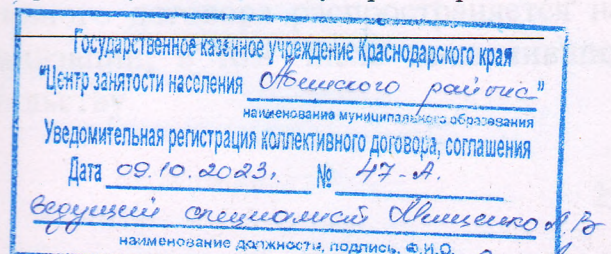 Государственное казенное учреждение Краснодарского края
"Центр занятости населения Абинского района"
наименование муниципального образования
Уведомительная регистрация коллективного договора, соглашения
Дата 09.10.2023г. № 47-А.
ведущий специалист Мищенко А.В
наименование должности, подпись, Ф.И.О.